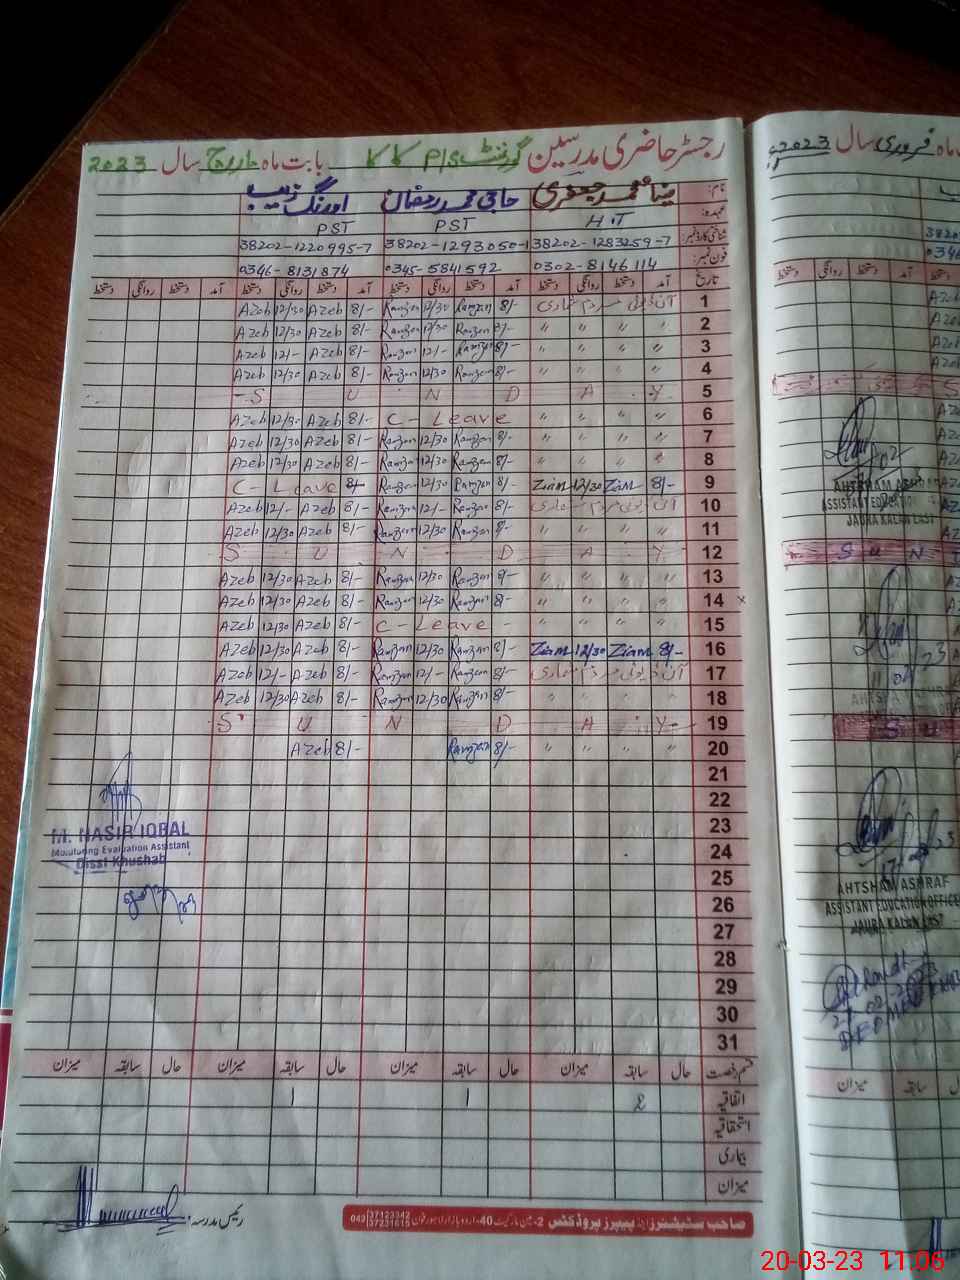 رجسٹر حاضری مدرسین گورنمنٹ P/S ککا بابت ماہ مارچ سال 2023
نام: ضیاء محمد جعفری حاجی محمد رمضان اورنگ زیب
عہدہ: H.T PST PST
شناختی کارڈ نمبر 38202-1283259-7 38202-1293050-1 38202-1220995-7
فون نمبر: 0302-8146114 0345-5841592 0346-8131874
تاریخ آمد دستخط روانگی دستخط آمد دستخط روانگی دستخط آمد دستخط روانگی دستخط آمد دستخط روانگی دستخط
Azeb 12/30 Azeb 8/- Ramzan 12/30 Ramzan 8/- آن ڈیوٹی مردم شماری 1
Azeb 12/30 Azeb 8/- Ramzan 12/30 Ramzan 8/- " " " " 2
Azeb 12/- Azeb 8/- Ramzan 12/- Ramzan 8/- " " " " 3
Azeb 12/30 Azeb 8/- Ramzan 12/30 Ramzan 8/- " " " " 4
S U N D A Y 5
Azeb 12/30 Azeb 8/- C - Leave " " " " 6
Azeb 12/30 Azeb 8/- Ramzan 12/30 Ramzan 8/- " " " " 7
Azeb 12/30 Azeb 8/- Ramzan 12/30 Ramzan 8/- " " " " 8
C - Leave 8/- Ramzan 12/30 Ramzan 8/- Ziam 12/30 Ziam 8/- 9
Azeb 12/- Azeb 8/- Ramzan 12/- Ramzan 8/- آن ڈیوٹی مردم شماری 10
Azeb 12/30 Azeb 8/- Ramzan 12/30 Ramzan 8/- " " " " 11
S U N D A Y 12
Azeb 12/30 Azeb 8/- Ramzan 12/30 Ramzan 8/- " " " " 13
Azeb 12/30 Azeb 8/- Ramzan 12/30 Ramzan 8/- " " " " 14
Azeb 12/30 Azeb 8/- C - Leave - " " " " 15
Azeb 12/30 Azeb 8/- Ramzan 12/30 Ramzan 8/- Ziam 12/30 Ziam 8/- 16
Azeb 12/- Azeb 8/- Ramzan 12/- Ramzan 8/- آن ڈیوٹی مردم شماری 17
Azeb 12/30 Azeb 8/- Ramzan 12/30 Ramzan 8/- " " " " 18
S U N D A Y 19
Azeb 8/- Ramzan 8/- " " " " 20
21
22
23
24
25
26
27
28
29
30
31
M. NASIR IQBAL
Monitoring Evaluation Assistant
Distt Khushab
قسم رخصت حال سابقہ میزان حال سابقہ میزان حال سابقہ میزان حال سابقہ میزان
اتفاقیہ 2 1 1
استحقاقیہ
بیماری
میزان
رئیس مدرسہ:
صاحب سٹیشنرز اینڈ پیپرز پروڈکٹس 2-مین مارکیٹ 40-اردو بازار لاہور فون 042 37123342 37231615
ماہ فروری سال 2023
AHTSHAM ASHRAF
ASSISTANT EDUCATION
JAURA KALAN EAST
S U N
S U
AHTSHAM ASHRAF
ASSISTANT EDUCATION OFFICE
JAURA KALAN EAST
میزان سابقہ
20-03-23 11:06